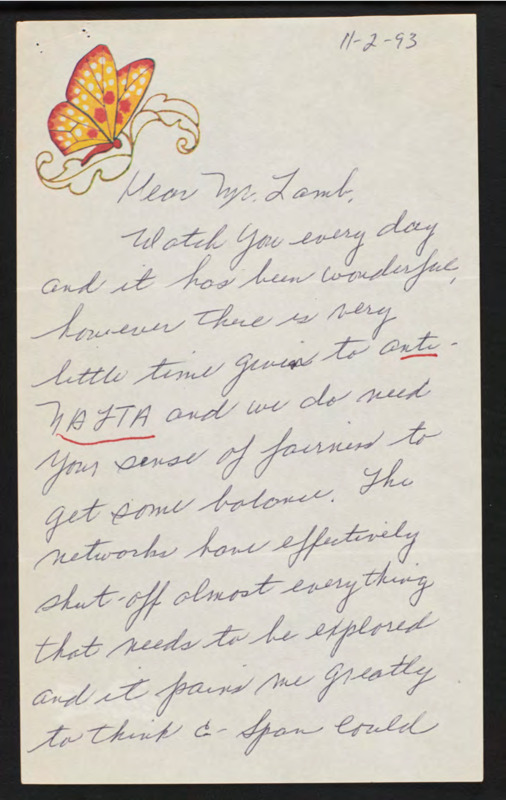 11-2-93
Dear Mr. Lamb,
Watch you every day
and it has been wonderful,
however there is very
little time given to anti-
NAFTA and we do need
your sense of fairness to
get some balance. The
networks have effectively
shut-off almost everything
that needs to be explored
and it pains me greatly
to think C-Span could